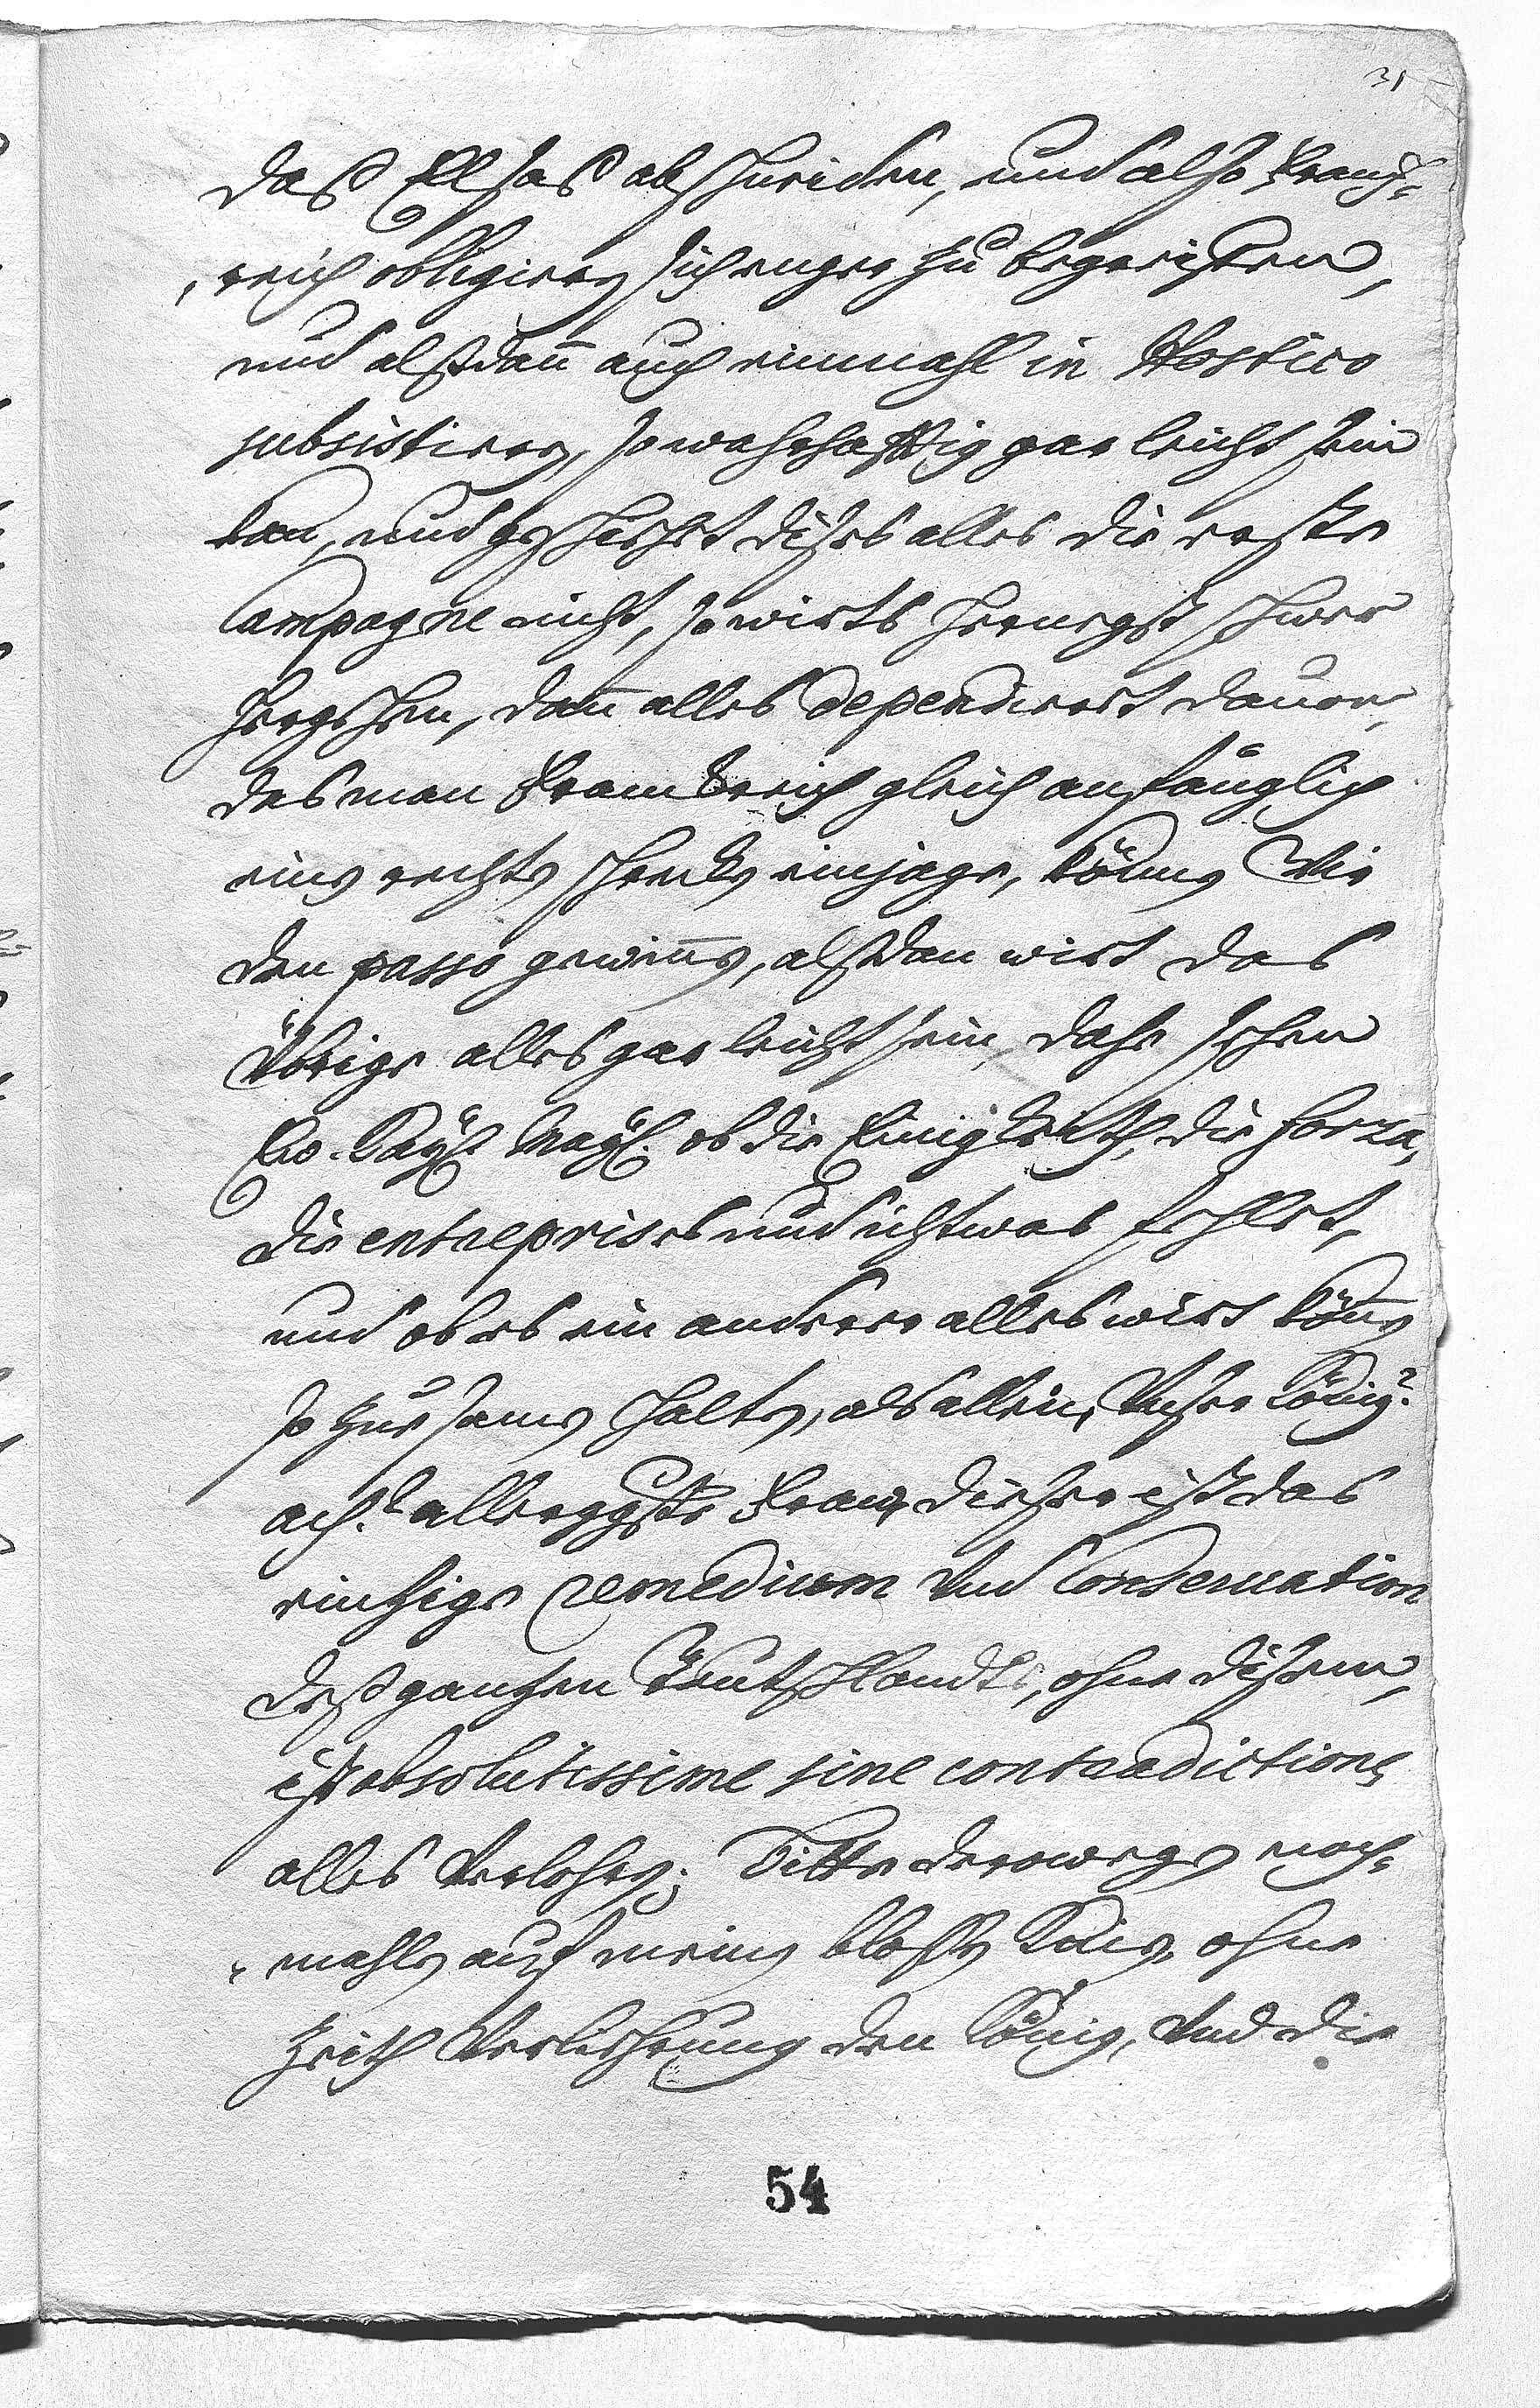 31
das Ellsas abschneiden, und also Franck-
reich obligiren sich enger zu begreiffen,
und alßdan auch einmahl in Hostico
subsistiren, so wahrhafftig gar leicht sein
kan, und geschicht dises alles die erste
Campagne nicht, so wirts hernegst schwer
hergehen, dan alles dependirt dauon,
das man Franckreich gleich anfänglich
einen rechten schrecken einjage, können Wir
den passo gewinnen, alßdan wirt das
übrige alles gar leicht sein, dahe sehen
Ew. Kayß. Mayt. ob die Einigkeith, die forza,
die entreprises und ichtwas fehlet,
und ob es ein anderer alles wirt können
so zusamen halten, als allein Unser König?
ach! allergnste Fraw, dieser ist das
eintzige remedium und Conseruation
deß gantzen Teutschlandts, ohne disem,
ist absolutissime sine contradictione
alles Verlohren; Bitte derowegen noch-
mahlen auf meinen blossen Knien, ohne
Zeith Verliehrung den König, Und die
54